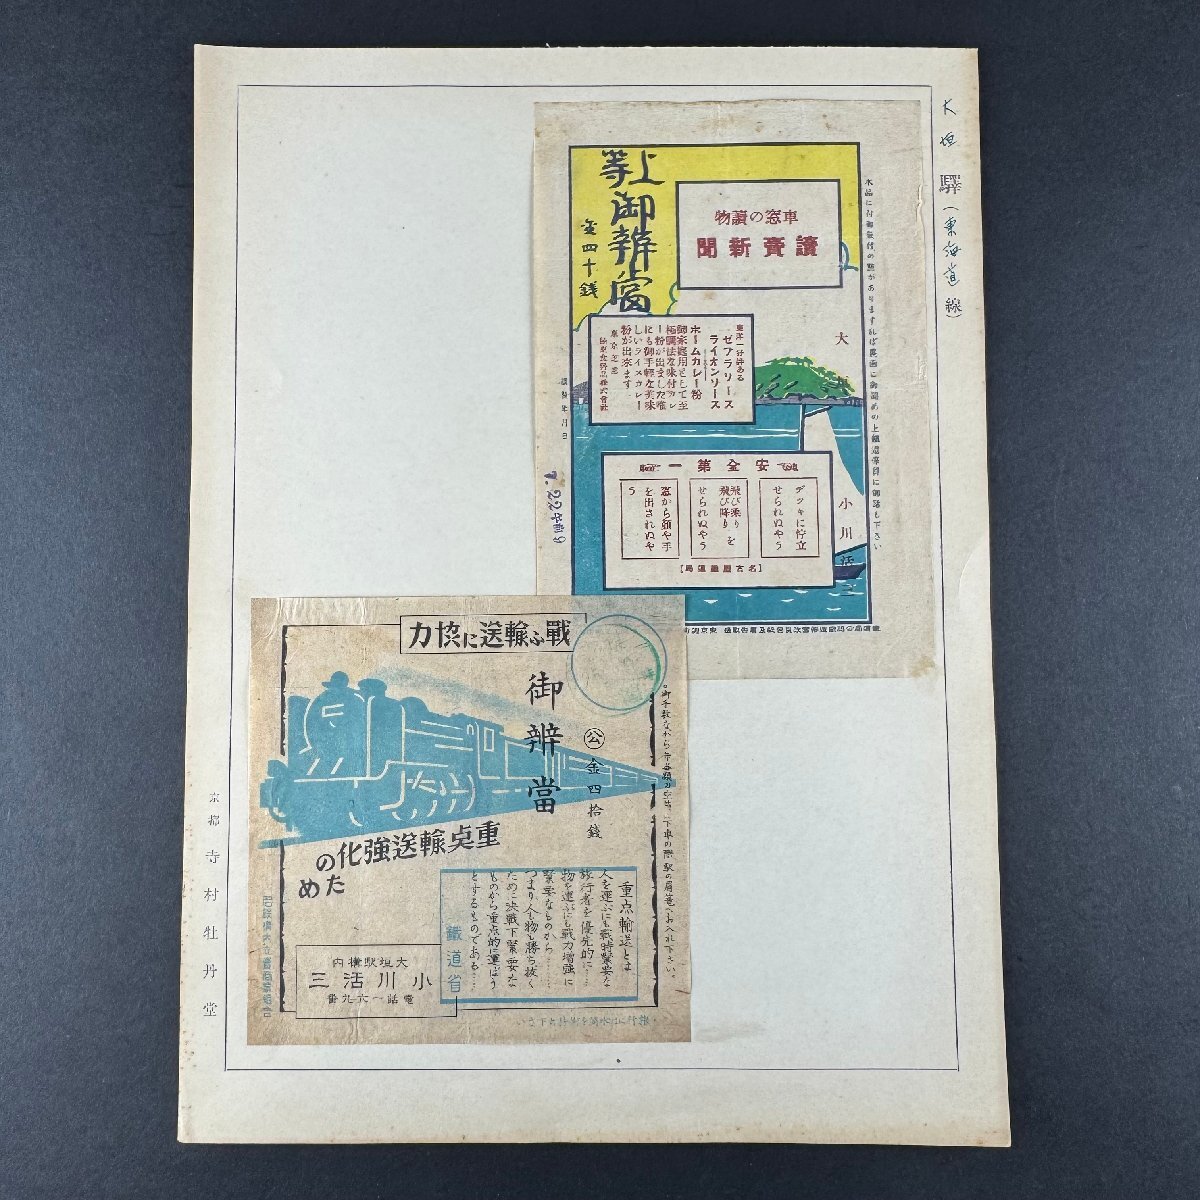 大垣驛(東海道線)
上等
御辨當
金四十銭
車窓の讀物
讀賣新聞
東洋一好評ある
ゼブラソース
ライオンソース
ホームカレー粉
御家庭用として至
極調法な味付カレ
ー粉が出ました誰
にも御手軽な美味
しいライスカレー
粉が出来ます
調製年月日
7.22午前9
大
小川活三
安全第一
デッキに佇立
せられぬやう
飛び乗り
飛び降り を
せられぬやう
窓から顔や手
を出されぬや
う
【名古屋鐵道局】
戰ふ輸送に協力
御辨當
公 金四拾銭
重点輸送強化の
ため
重点輸送とは
人を運ぶにも戰時緊要な
旅行者を優先的に……
物を運ぶにも戰力増強に
緊要なものから……
つまり人も物も勝ち抜く
ために決戰下緊要な
ものから重点的に運ばう
とするものである……
鐵道省
大垣駅構内
小川活三
電話一六九番
京都 寺村牡丹堂